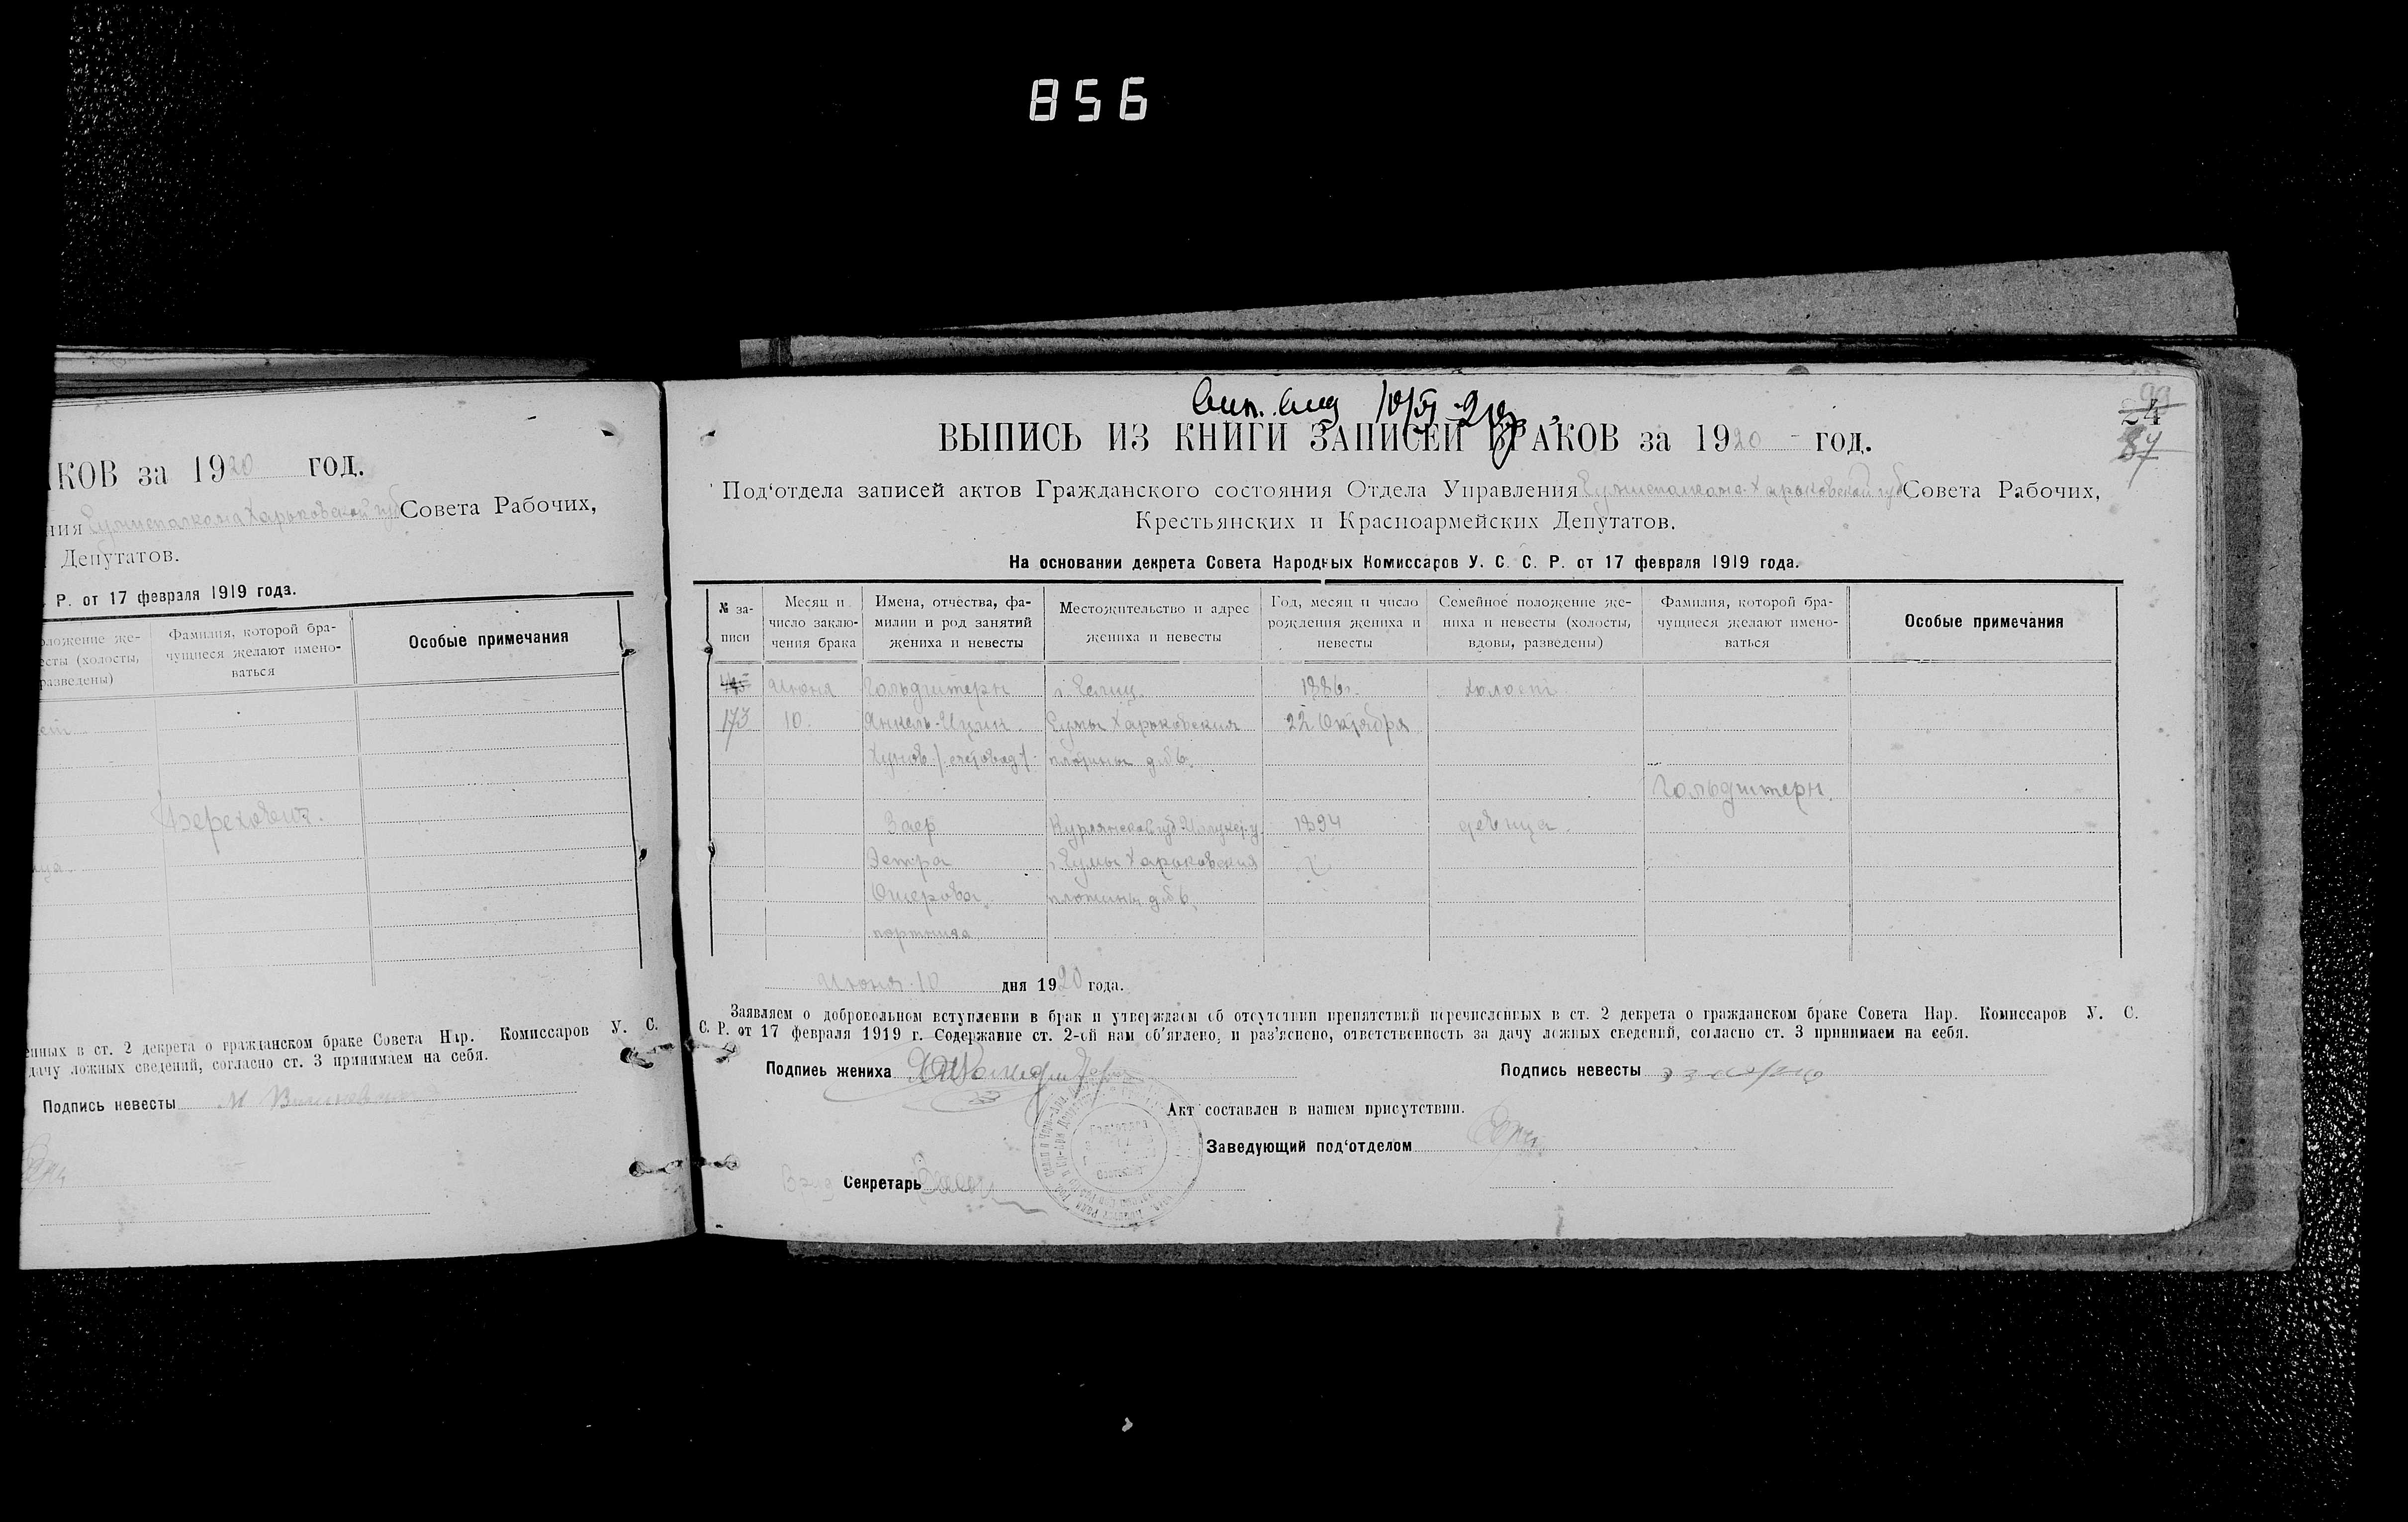 856
КОВ за 1920 год.
ния Сумисполкома Харьковской губ Совета Рабочих,
Депутатов.
Р. от 17 февраля 1919 года.
оложение же-
есты (холосты,
разведены)
Фамилия, которой бра-
чущиеся желают имено-
ваться
Особые примечания
енных в ст. 2 декрета о гражданском браке Совета Нар. Комиссаров У. С.
дачу ложных сведений, согласно ст. 3 принимаем на себя.
Подпись невесты
24
ВЫПИСЬ ИЗ КНИГИ ЗАПИСЕЙ БРАКОВ за 1920 год.
Под‘отдела записей актов Гражданского состояния Отдела Управления Сумисполкома Харьковской губ Совета Рабочих,
Крестьянских и Красноармейских Депутатов.
На основании декрета Совета Народных Комиссаров У. С. С. Р. от 17 февраля 1919 года.
№ за-
писи
Месяц и
число заклю-
чения брака
Имена, отчества, фа-
милии и род занятий
жениха и невесты
Местожительство и адрес
жениха и невесты
Год, месяц и число
рождения жениха и
невесты
Семейное положение же-
ниха и невесты (холосты,
вдовы, разведены)
Фамилия, которой бра-
чущиеся желают имено-
ваться
Особые примечания
Июня Гольдштерн 1886 холост
173 10. Янкель-Ицик Сумы Харьковская 22 Октября
д №6.
Гольдштерн
Заер 1894 девица.
Эстра г. Сумы Харьковская
Ошерова д №6.
портниха
Июня 10 дня 1920 года.
Заявляем о добровольном вступлении в брак и утверждаем об отсутствии препятствий перечисленных в ст. 2 декрета о гражданском браке Совета Нар. Комиссаров У. С.
С. Р. от 17 февраля 1919 г. Содержание ст. 2-ой нам об‘явлено, и раз‘яснено, ответственность за дачу ложных сведений, согласно ст. 3 принимаем на себя.
Подпись жениха
Подпись невесты
Акт составлен в нашем присутствии.
Заведующий под‘отделом
Секретарь